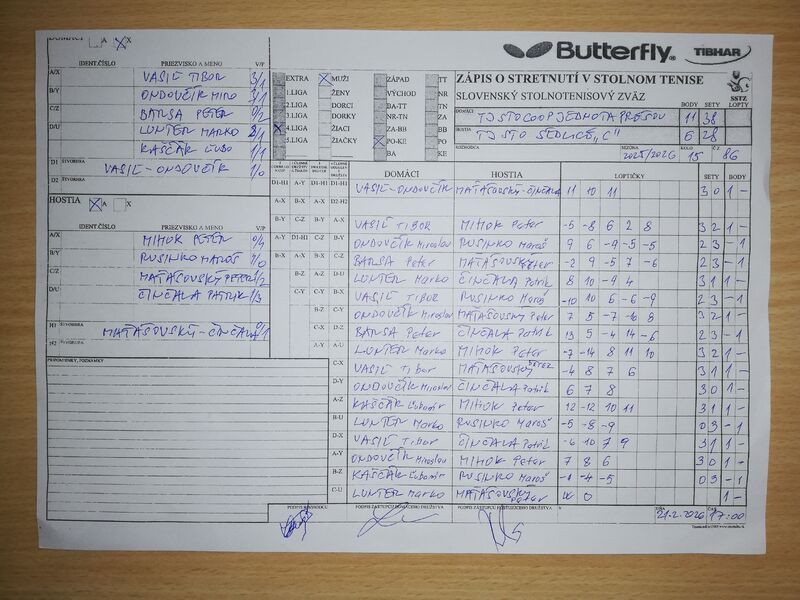 DOMÁCI A X
IDENT.ČÍSLO PRIEZVISKO A MENO V/P
A/X VASIĽ TIBOR 3/1
B/Y ONDOVČÍK MIRO 3/1
C/Z BARSA PETER 0/2
D/U LUNTER MARKO 3/1
KAŠČÁK ĽUBO 1/1
D1 ŠTVORHRA VASIĽ-ONDOVČÍK 1/0
D2
HOSTIA A X
IDENT.ČÍSLO PRIEZVISKO A MENO V/P
A/X MIHOK PETER 0/4
B/Y RUSINKO MAROŠ
C/Z MAŤAŠOVSKÝ PETER 1/2
D/U ČINČALA PATRIK 1/3
H1 ŠTVORHRA MAŤAŠOVSKÝ-ČINČALA 0/1
H2 ŠTVORHRA
PRIPOMIENKY, POZNÁMKY
Butterfly TIBHAR
EXTRA X MUŽI ZÁPAD TT
1.LIGA ŽENY VÝCHOD NR
2.LIGA DORCI BA-TT TN
3.LIGA DORKY NR-TN ZA
X 4.LIGA ŽIACI ZA-BB BB
5.LIGA ŽIAČKY PO-KE PO
BA KE
ZÁPIS O STRETNUTÍ V STOLNOM TENISE
SLOVENSKÝ STOLNOTENISOVÝ ZVÄZ
SSTZ
BODY SETY
DOMÁCI TJ STO COOP JEDNOTA PREŠOV 11 38
HOSTIA TJ STO SEDLICE "C" 6 28
ROZHODCA SEZÓNA 2025/2026 KOLO 15 Č.Z. 86
DOMÁCI HOSTIA LOPTIČKY SETY BODY
D1-H1 VASIĽ-ONDOVČÍK MAŤAŠOVSKÝ-ČINČALA 11 10 11 3 0 1 -
VASIĽ TIBOR MIHOK Peter -5 -8 6 2 8 3 2 1 -
ONDOVČÍK Miroslav RUSINKO Maroš 9 6 -9 -5 -5 2 3 - 1
BARSA Peter MAŤAŠOVSKÝ Peter -2 9 -5 7 -6 2 3 - 1
LUNTER Marko ČINČALA Patrik 8 10 -9 4 3 1 1 -
VASIĽ TIBOR RUSINKO Maroš -10 10 6 -6 -9 2 3 - 1
ONDOVČÍK Miroslav MAŤAŠOVSKÝ Peter 7 5 -7 8 2 3 - 1
BARSA Peter ČINČALA Patrik 13 5 -4 -14 -6 2 3 - 1
LUNTER Marko MIHOK Peter -7 -14 8 11 10 3 2 1 -
C-X VASIĽ Tibor MAŤAŠOVSKÝ PETER -4 8 7 6 3 1 1 -
D-Y ONDOVČÍK Miroslav ČINČALA Patrik 6 7 8 3 0 1 -
A-Z KAŠČÁK Ľubomír MIHOK Peter 12 -12 10 11 3 1 1 -
B-U LUNTER Marko RUSINKO Maroš -5 -8 -9 0 3 - 1
D-X VASIĽ Tibor ČINČALA Patrik -6 10 7 9 3 1 1 -
A-Y ONDOVČÍK Miroslav MIHOK Peter 7 8 6 3 0 1 -
B-Z KAŠČÁK Ľubomír RUSINKO Maroš -4 -5 0 3 - 1
C-U LUNTER Marko MAŤAŠOVSKÝ Peter 1 -
PODPIS ROZHODCU PODPIS ZÁSTUPCU DOMÁCEHO DRUŽSTVA PODPIS ZÁSTUPCU HOSŤUJÚCEHO DRUŽSTVA V DŇA 21.2.2026 ČAS 17:00